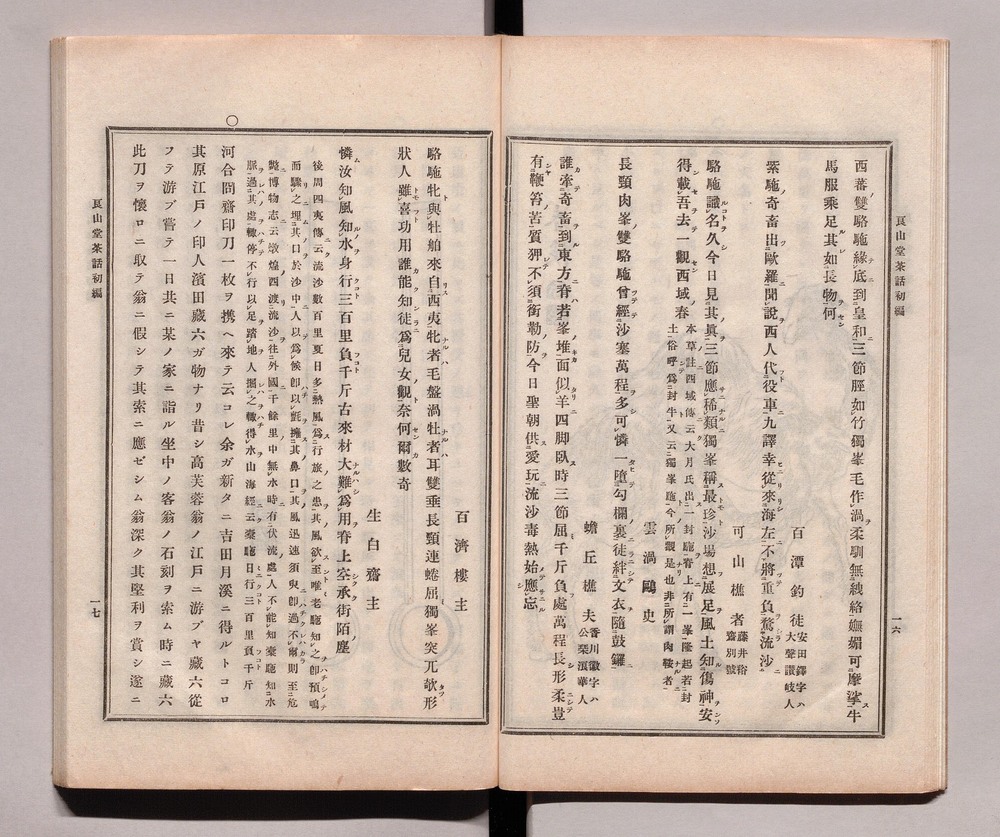 良山堂茶話初編
一六
西蕃雙駱駞緣底到皇和三節脛如竹獨峯毛作渦柔馴無綫絡嫵媚可摩挲牛
馬服乘足其如長物何
百潭釣徒 安田鐸字ハ大聲讃岐人
紫駞奇畜出歐羅聞說西人代役車九譯幸從來海左不將重負驁流沙
可山樵者 藤井裕齋別號
駱駞讖名久今日見其眞三節應稀類獨峯稱最珍沙場想展足風土知傷神安
得載吾去一觀西域春 本草註西域傳云大月氏出一封駞脊上有一峯隆起若封土俗呼爲封牛又云獨峯駞今所觀是也非所謂肉鞍者
雲渦鷗史
長頸肉峯雙駱駞曾經沙塞萬程多可憐一墮勾欄裏徒絆文衣隨鼓鑼
蟾丘樵夫 香川徽字ハ公琹濵華人
誰牽奇畜到東方脊若峯堆面似羊四脚臥時三節屈千斤負處萬程長形柔豈
有鞭笞苦質狎不須銜勒防今日聖朝供愛玩流沙毒熱始應忘
百濟樓主
駱駞牝與牡舶來自西夷牝者毛盤渦牡者耳雙垂長頸連蜷屈獨峯突兀欹形
狀人雖喜功用誰能知徒爲兒女觀奈何爾數奇
生白齋主
憐汝知風知水身行三百里負千斤古來材大難爲用脊上空承街陌塵
後周四夷傳云流沙數百里夏日多熱風爲行旅之患其風欲至唯老駞知之卽預鳴
而驟之埋其口於沙中人以爲候卽以氈擁其鼻口其風迅速須臾卽過不爾則至危
斃博物志云燉煌西渡流沙往外國千餘里中無水時有伏流處人不能知橐駞知水
脈過其處輙停不行以足踏地人掘之輙得水山海經云橐駞日行三百里負千斤
○
河合問齋印刀一枚ヲ携ヘ來テ云コレ余ガ新タニ吉田月溪ニ得ルトコロ
其原江戸ノ印人濱田藏六ガ物ナリ昔シ高芙蓉翁ノ江戸ニ游ブヤ藏六從
フテ游ブ嘗テ一日共ニ某ノ家ニ詣ル坐中ノ客翁ノ石刻ヲ索ム時ニ藏六
此刀ヲ懷ロニ取テ翁ニ假シテ其索ニ應ゼシム翁深ク其堅利ヲ賞シ遂ニ
良山堂茶話初編
一七